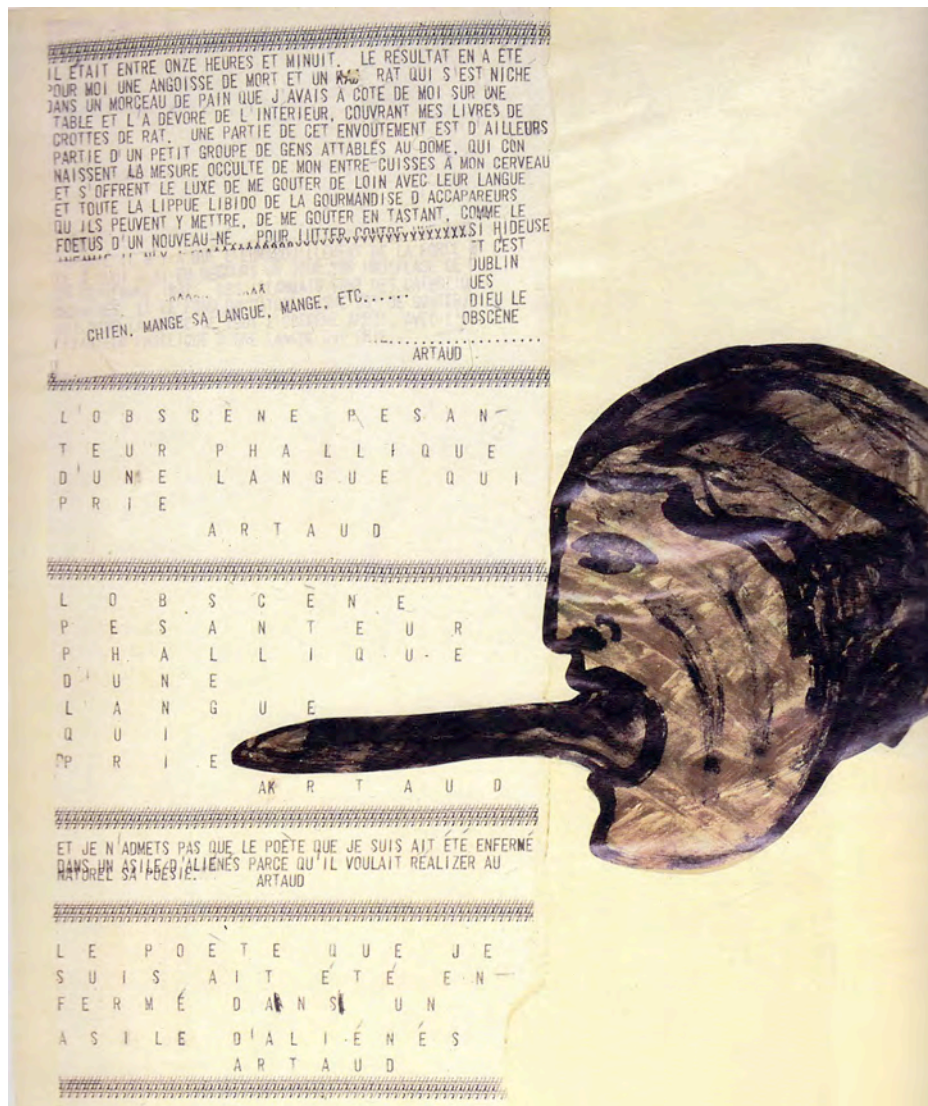 IL ÉTAIT ENTRE ONZE HEURES ET MINUIT. LE RESULTAT EN A ETE
POUR MOI UNE ANGOISSE DE MORT ET UN RAT QUI S'EST NICHE
DANS UN MORCEAU DE PAIN QUE J'AVAIS A COTE DE MOI SUR UNE
TABLE ET L'A DEVORE DE L'INTERIEUR, COUVRANT MES LIVRES DE
CROTTES DE RAT. UNE PARTIE DE CET ENVOUTEMENT EST D'AILLEURS
PARTIE D'UN PETIT GROUPE DE GENS ATTABLES AU DOME, QUI CON
NAISSENT LA MESURE OCCULTE DE MON ENTRE-CUISSES A MON CERVEAU
ET S'OFFRENT LE LUXE DE ME GOUTER DE LOIN AVEC LEUR LANGUE
ET TOUTE LA LIPPUE LIBIDO DE LA GOURMANDISE D ACCAPAREURS
QU ILS PEUVENT Y METTRE, DE ME GOUTER EN TASTANT, COMME LE
FOETUS D'UN NOUVEAU-NE. POUR LUTTER CONTRE SI HIDEUSE
ET C'EST
DUBLIN
UES
DIEU LE
CHIEN, MANGE SA LANGUE, MANGE, ETC......
OBSCÈNE
ARTAUD
L'OBSCÈNE PESAN-
TEUR PHALLIQUE
D'UNE LANGUE QUI
PRIE
ARTAUD
LOBSCÈNE
PESANTEUR
PHALLIQUE
D'UNE
LANGUE
QUI
PPRIE
AKRTAUD
ET JE N'ADMETS PAS QUE LE POÈTE QUE JE SUIS AIT ÉTÉ ENFERMÉ
DANS UN ASILE D'ALIÉNÉS PARCE QU'IL VOULAIT REALIZER AU
NATUREL SA POÉSIE.
ARTAUD
LE POÈTE QUE JE
SUIS AIT ÉTÉ EN-
FERMÉ DANS UN
ASILE D'ALIÉNÉS
ARTAUD